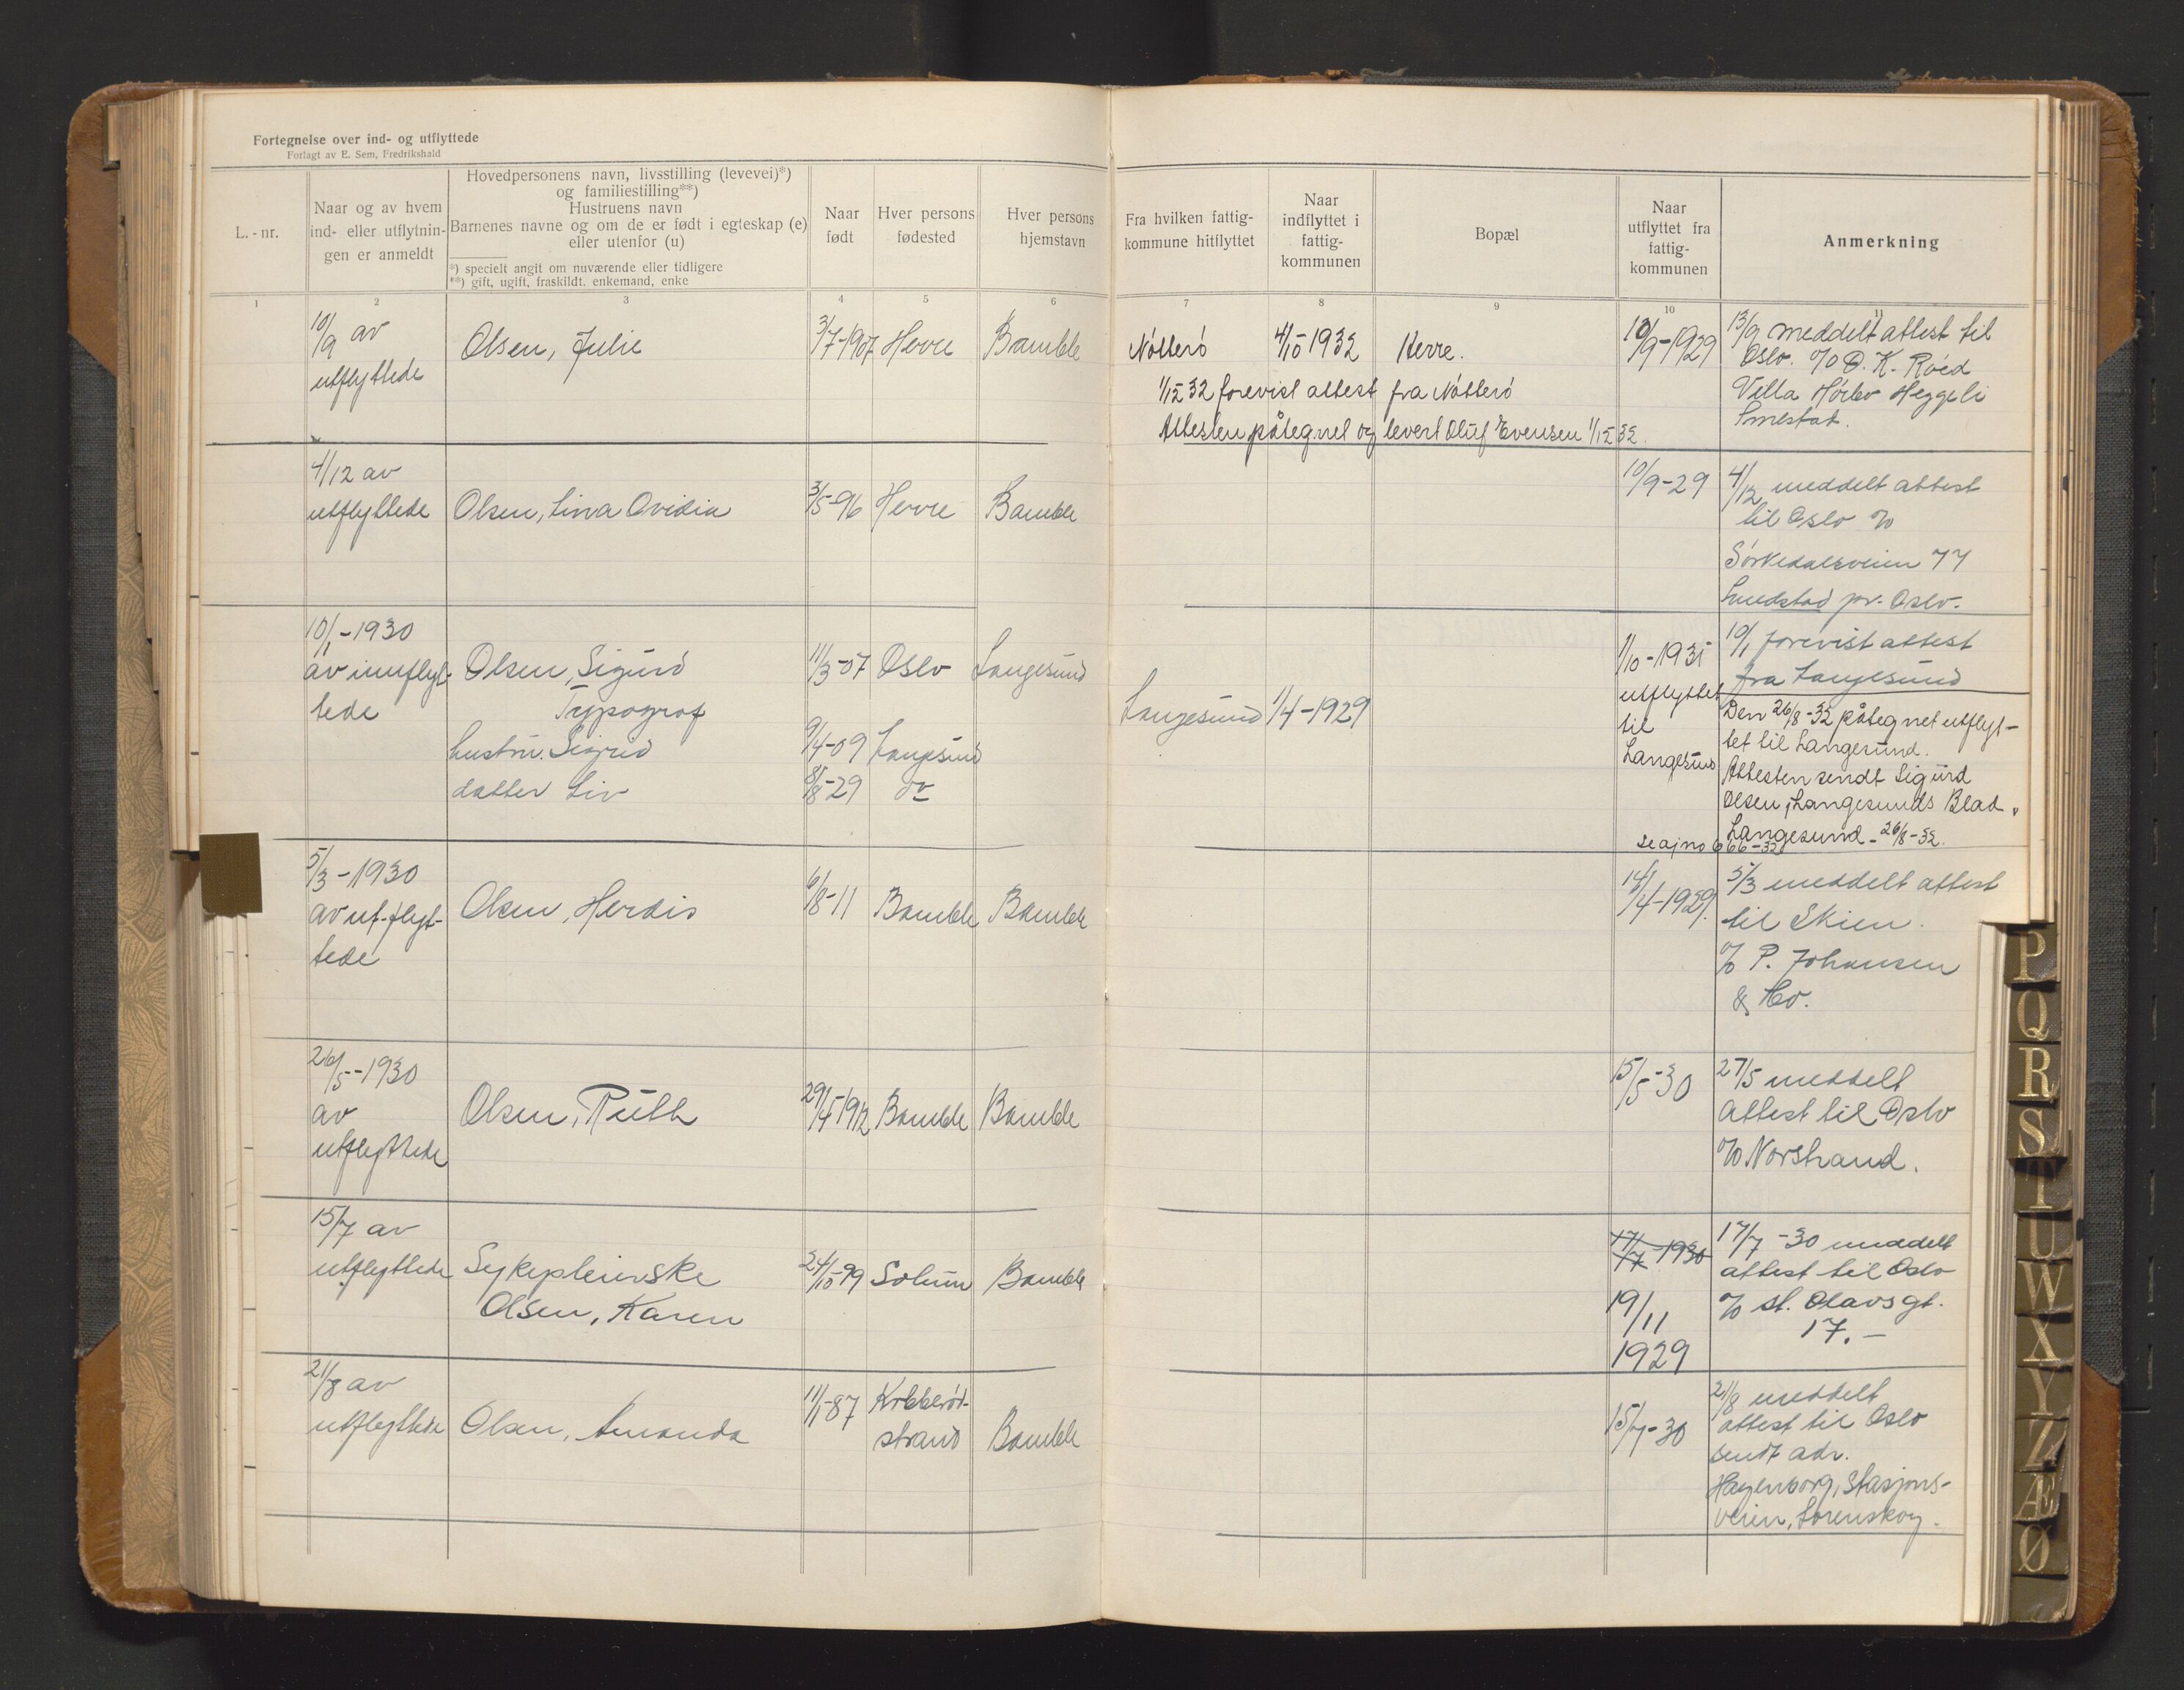 Fortegnelse over ind- og utflyttede
Forlagt av E. Sem, Fredrikshald
L. - nr.
Naar og av hvem
ind- eller utflytnin-
gen er anmeldt
Hovedpersonens navn, livsstilling (levevei)*)
og familiestilling**)
Hustruens navn
Barnenes navne og om de er født i egteskap (e)
eller utenfor (u)
*) specielt angit om nuværende eller tidligere
**) gift, ugift, fraskildt. enkemand, enke
Naar
født
Hver persons
fødested
Hver persons
hjemstavn
Fra hvilken fattig-
kommune hitflyttet
Naar
indflyttet i
fattig-
kommunen
Bopæl
Naar
utflyttet fra
fattig-
kommunen
Anmerkning
1 2 3 4 5 6 7 8 9 10 11
10/9 av
utflyttede
Olsen, Julie
3/7-1907 Herre Bamble
Nøtterö 4/10-1932 Herre.
1/12 32 forevist attest fra Nötterö
Attesten påtegnet og levert Oluf Evensen 1/12 32.
10/9-1929
13/9 meddelt attest til
Oslo. c/o O. K. Röed
Villa Heggeli
Smestad.
4/12 av
utflyttede
Olsen, Lina Ovidia
3/5-96 Herre Bamble
10/9-29
4/12 meddelt attest
til Oslo c/o
Sörkedalsveien 77
Smedstad pr. Oslo.
10/1-1930
av innflyt-
tede
Olsen, Sigurd
Typograf
hustru. Sigrid
datter Liv
11/3-07 Oslo Langesund
9/4-09 Langesund
8/8-29 do
Langesund 1/4-1929
1/10-1931
utflyttet
til
Langesund
10/1 forevist attest
fra Langesund
Den 26/8-32 påtegnet utflyt-
tet til Langesund.
Attesten sendt Sigurd
Olsen, Langesunds Blad,
Langesund - 26/8-32.
se ajno 666-32
5/3-1930
av ut-flyt-
tede
Olsen, Herdis
6/8-11 Bamble Bamble
14/4-1929.
5/3 meddelt attest
til Skien.
c/o P. Johansen
& Co.
26/5-1930
av
utflyttede
Olsen, Ruth
29/4-1912 Bamble Bamble
15/5-30
27/5 meddelt
attest til Oslo
c/o Norstrand.
15/7 av
utflyttede
Sykepleierske
Olsen, Karen
24/10-99 Solum Bamble
17/7-1930
19/11
1929
17/7-30 meddelt
attest til Oslo
c/o St. Olavsgt.
17.-
21/8 av
utflyttede
Olsen, Amanda
11/1-87
strand Bamble
15/7-30
21/8 meddelt
attest til Oslo
sendt adr.
Hagenborg, Stasjons-
veien, Lørenskog.
P
Q
R
S
T
U
W
X
Y
Z
Æ
Ø